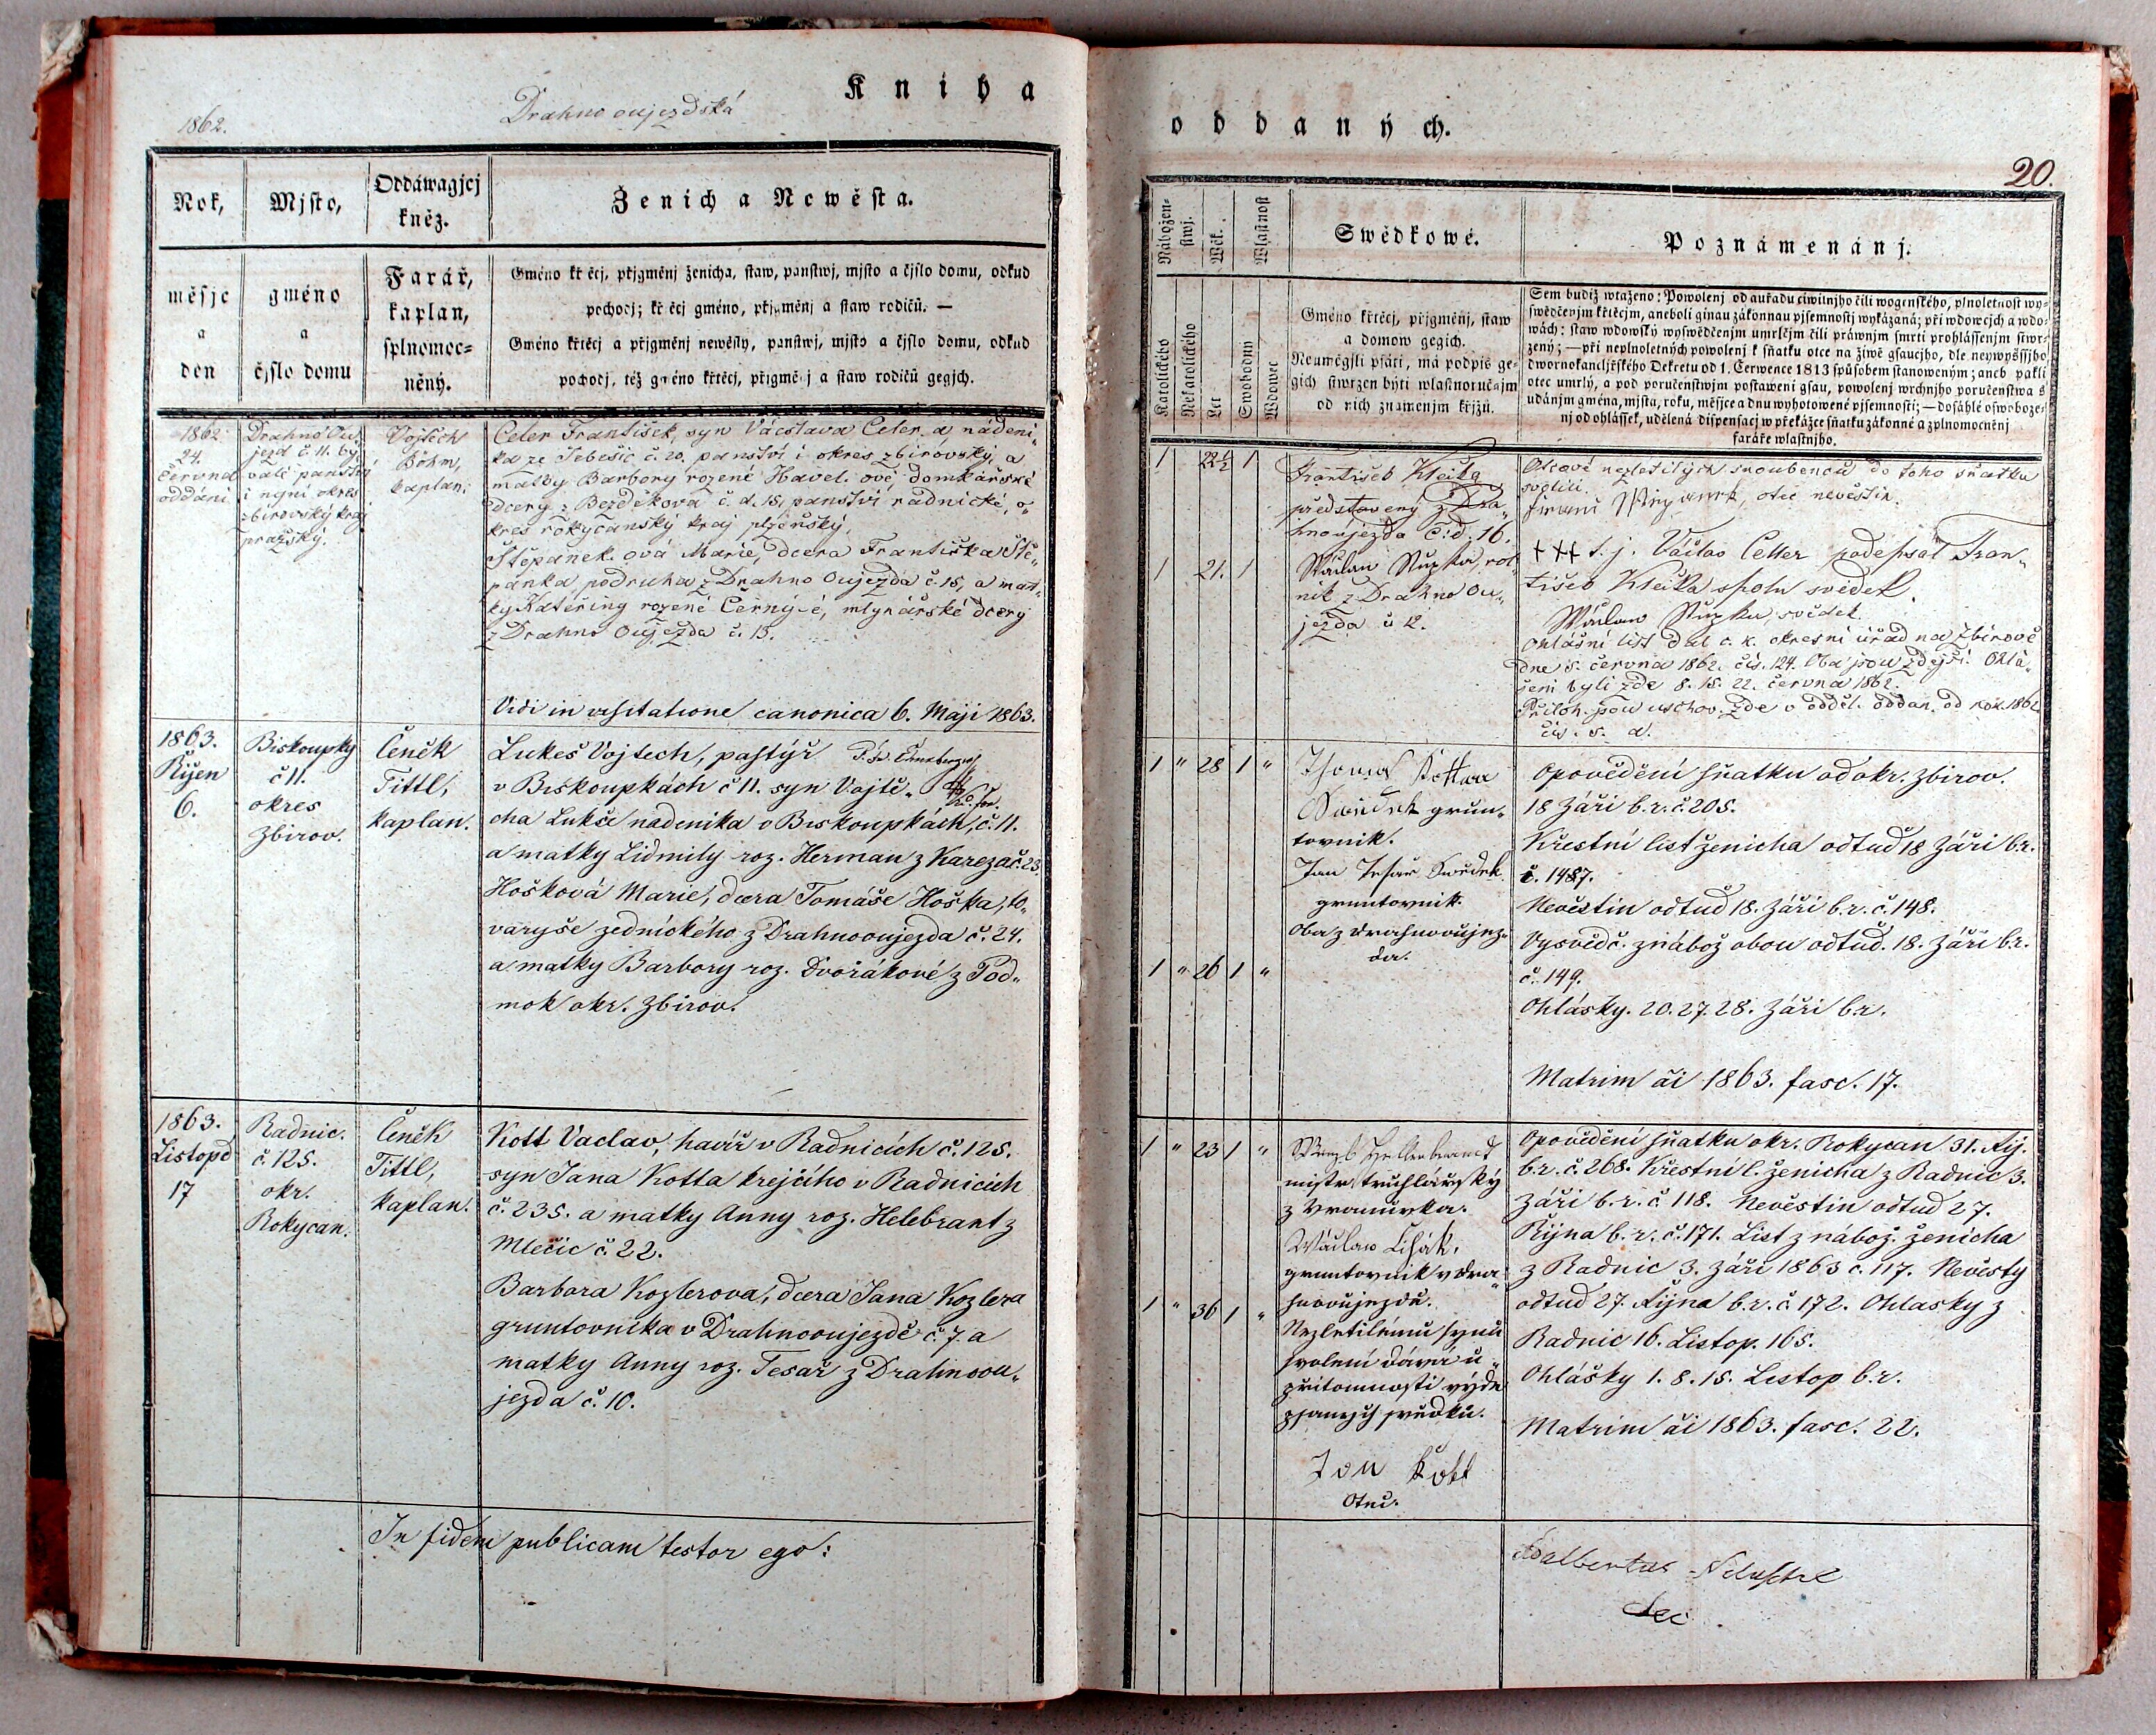 Kniha
1862.
Drahno oujezdská
Rok,
měsjc
a
den
Mjsto,
gméno
a
čjslo domu
Oddáwagjcj
kněz.
Farář,
kaplan,
splnomoc=
něný.
Ženich a Newěsta.
Gméno křtěcj, přjgměnj ženicha, staw, panstwj, mjsto a čjslo domu, odkud
pochozj; křtěcj gméno, přjgměnj a staw rodičů. —
Gméno křtěcj a přjgměnj newěsty, panstwj, mjsto a čjslo domu, odkud
pochozj, též gméno křtěcj, přjgměnj a staw rodičů gegjch.
1862
24.
června
oddáni
Drahno Ou„
jezd č. 11. by„
valé panství
i nyní okres
zbirovský kraj
pražský.
Vojtěch
Böhm,
kaplan.
Celer František, syn Václava Celer a nádeni„
ka ze Sebešic č. 20. panství i okres zbirovský, a
matky Barbory rozené Havel. ové domkářské
dcery z Bezděkova č. d. 15, panství radnické, o„
kres rokycanský kraj plzeňský.
Štěpánek. ová Marie, dcera Františka Stě„
pánka, podruha z Drahno Oujezda č. 15, a mat„
ky Kateřiny rozené Černý-é, mlynářské dcery
z Drahno Oujezda č. 15.
Vidi in visitatione canonica 6. Maji 1863.
1863.
Říjen
6.
Biskoupky
č 11.
okres
Zbirov.
Čeněk
Tittl,
kaplan.
Lukeš Vojtech, pastýř
v Biskoupkách č 11. syn Vojtě„
cha Lukše nádenika v Biskoupkách, č. 11.
a matky Lidmily roz. Herman z Kareza č. 23.
Hošková Marie, dcera Tomáše Hoška, to„
varyše zednického z Drahnooujezda č. 24.
a matky Barbory roz. Dvořákové z Pod„
mok okr. Zbirov.
1863.
Listopd
17
Radnic.
č. 125.
okr.
Rokycan.
Čeněk
Tittl,
kaplan.
Kott Vaclav, havíř v Radnicích č. 125.
syn Jana Kotta krejčího v Radnicích
č. 235. a matky Anny roz. Helebrant z
Mlečic č. 22.
Barbara Kozlerova, dcera Jana Kozlera
gruntovníka v Drahnooujezdě č. 7. a
matky Anny roz. Tesař z Drahnoou„
jezda č. 10.
In fidem publicam testor ego:
oddaných.
20.
Nábožen-
stwj.
Wěk.
Wlastnost
Katolického
Nekatolického
Let
Swobodný
Wdowec
Swědkowé.
Gméno křtěcj, přjgměnj, staw
a domow gegich.
Neumějgli psáti, má podpis ge=
gich stwrzen býti wlastnoručnjm
od nich znamenjm křjžů.
Poznámenánj.
Sem budiž wtaženo: Powolenj od auřadu ciwilnjho čili wogenského, plnoletnost wy=
swědčenjm křtěcjm, aneboli ginau zákonnau pjsemnostj wykázaná; při wdowcjch a wdo=
wách: staw wdowský wyswědčenjm umrlčjm čili práwnjm smrti prohlássenjm stwr=
zený; — při neplnoletných powolenj k sňatku otce na žiwě gsaucjho, dle neywyšssjho
dwornokancljřského Dekretu od 1. Čerwence 1813 spůsobem stanoweným; aneb pakli
otec umrlý, a pod poručenstwjm postaweni gsau, powolenj wrchnjho poručenstwa s
udánjm gména, mjsta, roku, měsjce a dnu wyhotowené pjsemnosti; — dosáhlé oswoboze=
nj od ohlássek, udělená dispensacj w překážce sňatku zákonné a zplnomocněnj
faráře wlastnjho.
1 22½ 1
František Kleika
představený z Dra„
hnoujezda č: d. 16.
1 21. 1
nik z Drahno Ou„
jezda č 12.
Otcové nezletilých snoubenců do toho sňatku
svolili.
otec nevěstin.
+++ t. j. Václav Celler podepsal Fran„
tišek Kleika spolu svědek.
svědek.
Ohlášní list dal c. k. okresní úřad na Zbirově
dne 5. června 1862. čís. 124. Oba jsou zdejší. Ohlá„
šeni byli zde 8. 15. 22. června 1862.
Příloh. jsou uschov. zde v odděl. oddan. od rok. 1862
čís. 5. a.
1 „ 28 1 „
grun„
tovnik.
Jan Tesař Swědek
gruntovnik.
oba z Drahnooujez„
da.
1 „ 26 1 „
Opovědění sňatku od okr. Zbirov.
18 Září b. r. č. 205.
Křestní list ženicha odtud 18 Září b. r.
č. 1487.
Nevěstin odtud 18. Září b. r. č. 148.
Vysvědč. z nábož obou odtud. 18. Září b. r.
č. 149.
Ohlásky. 20. 27. 28. Září b. r.
Matrim ai 1863. fasc. 17.
1 „ 23 1 „
mistr truhlářský
z Vranovka.
Wáclaw Lisák,
gruntovnik v Dra„
hnooujezdě.
1 „ 36 1 „
Nezletilému synu
svolení dává u
přitomnosti výše
psaných svědků.
Jan Kott
Otec.
Opovědění sňatku okr. Rokycan 31. Říj.
b. r. č. 268. Křestní l. ženicha z Radnic 3.
Září b. r. č. 118. Nevěstin odtud 27.
Října b. r. č. 171. List z nábož. ženicha
z Radnic 3. Září 1863 č. 117. Nevěsty
odtud 27. Října b. r. č. 172. Ohlasky z
Radnic 16. Listop. 165.
Ohlášky 1. 8. 15. Listop b. r.
Matrim ai 1863. fasc. 22.
Adalbertus